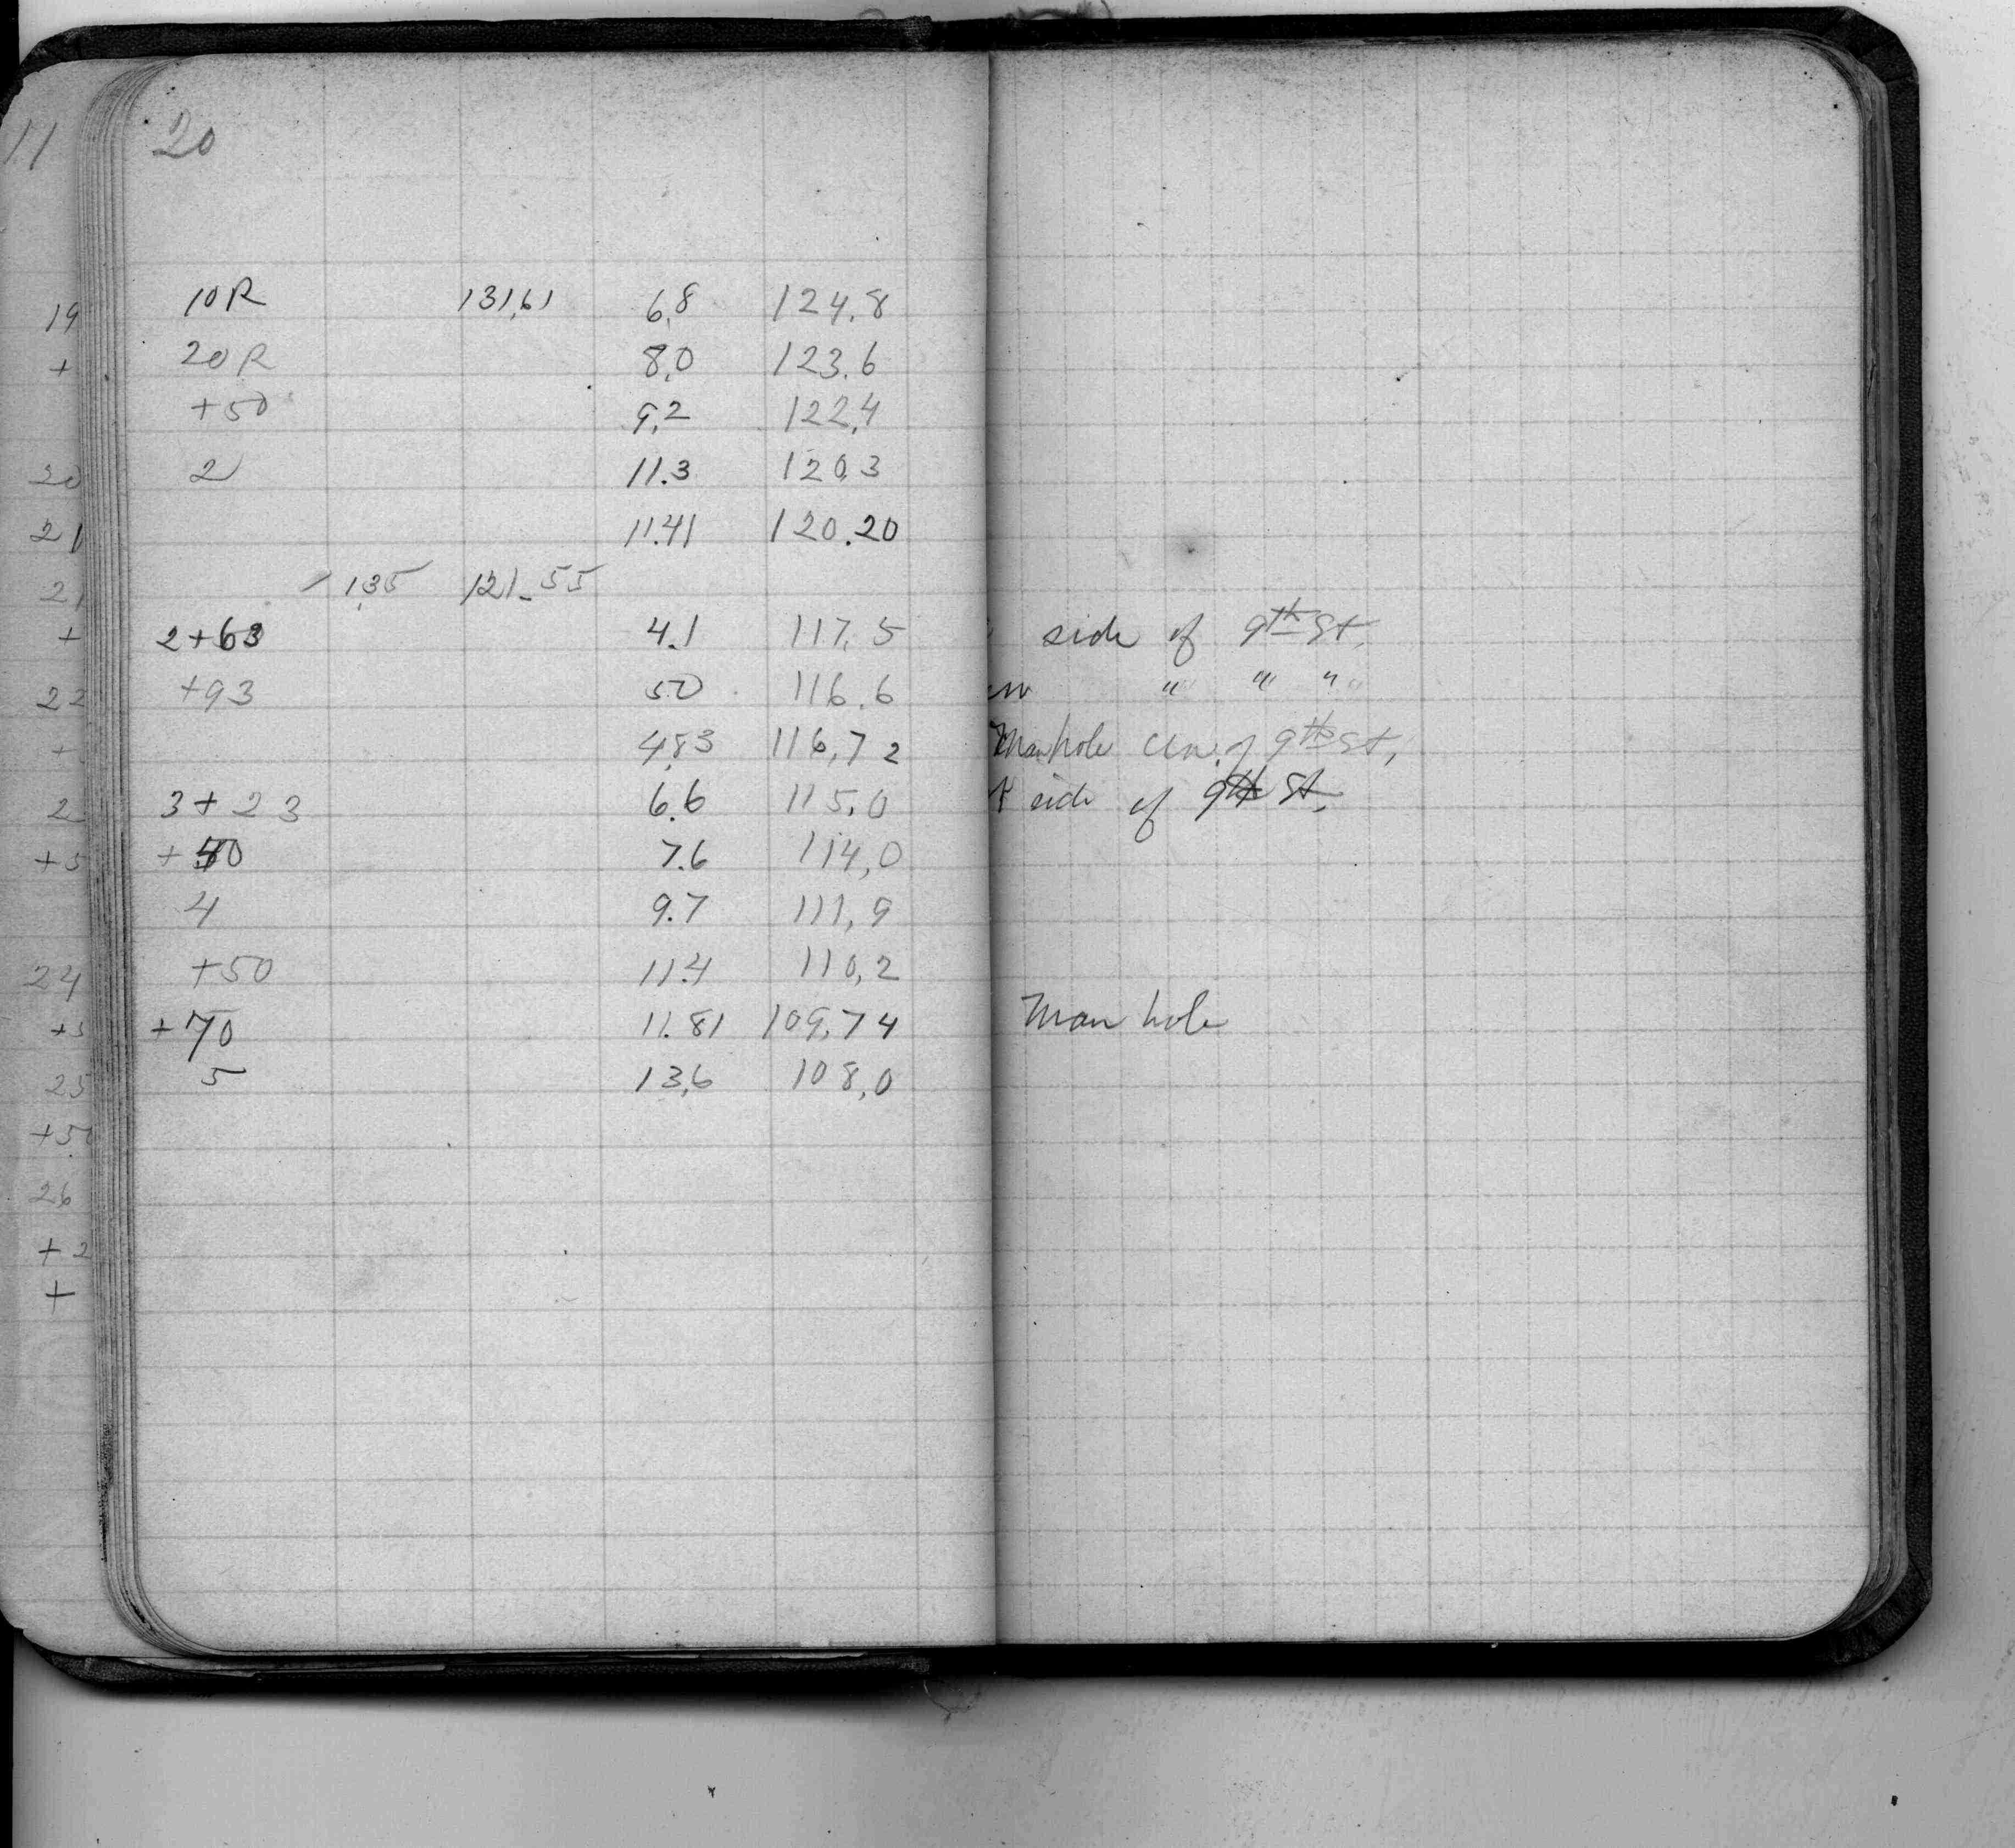 11 20
19 10R 131.61 6.8 124.8
+ 20R 8.0 123.6
+50 9.2 122.4
20 2 11.3 120.3
21 11.41 120.20
21 1.35 121.55
+ 2+63 4.1 117.5 side of 9th St.
22 +93 5.0 116.6 " " "
+ 4.83 116.72 Manhole Cen. of 9th St.
2 3+23 6.6 115.0 side of 9th St.
+5 +40 7.6 114.0
4 9.7 111.9
24 +50 11.4 110.2
+5 +70 11.81 109.74 Man hole
25 5 13.6 108.0
+50
26
+2
+